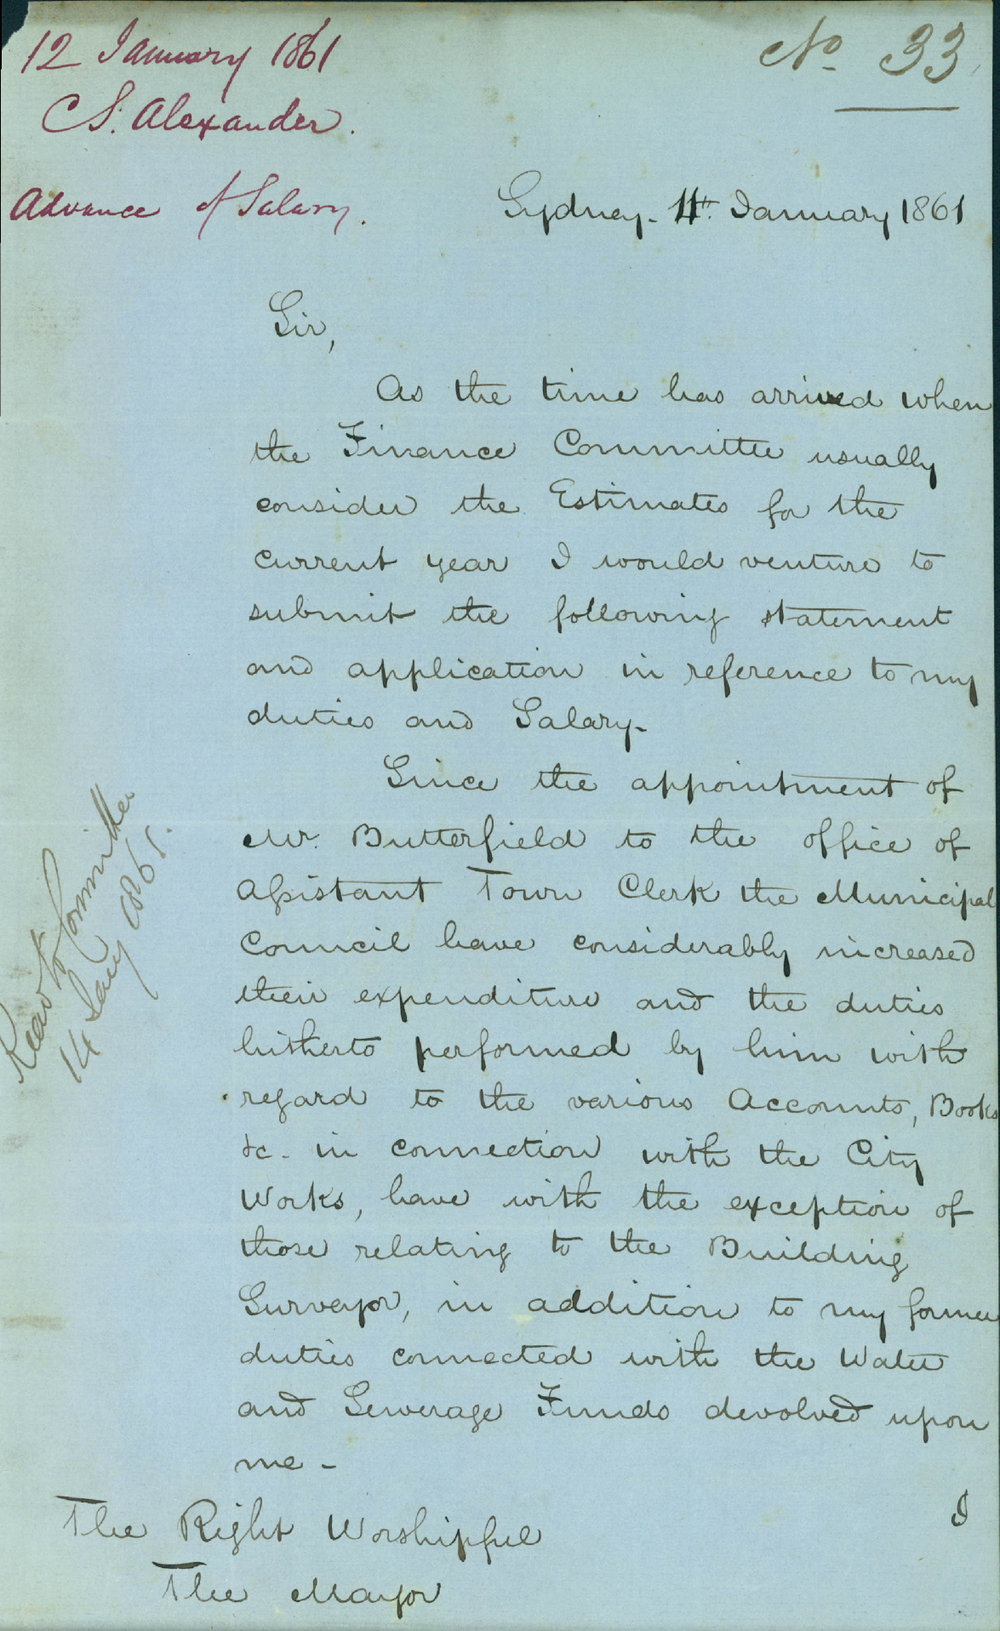 12 January 1861
C S. Alexander.
Advance of Salary.
No. 33
Sydney - 11th January 1861
Sir,
As the time has arrived when
the Finance Committee usually
consider the Estimates for the
current year I would venture to
submit the following statement
and application in reference to my
duties and Salary -
Since the appointment of
Mr. Butterfield to the office of
Assistant Town Clerk the Municipal
Council have considerably increased
their expenditure and the duties
hitherto performed by him with
regard to the various Accounts, Books
&c - in connection with the City
Works, have with the exception of
those relating to the Building
Surveyor, in addition to my former
duties connected with the Water
and Sewerage Funds devolved upon
me -
I
The Right Worshipful
The Mayor
to Committee
14 Jany 1861.